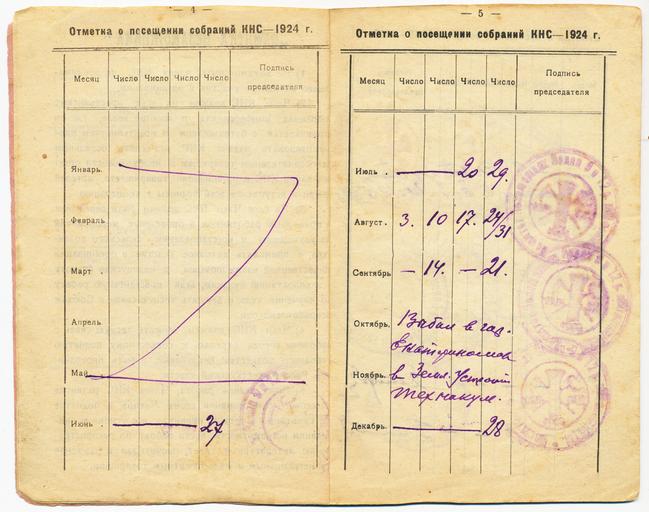 — 4 —
Отметка о посещении собраний КНС—1924 г.
Месяц Число Число Число Число Подпись председателя
Январь.
Февраль.
Март .
Апрель.
Май.
Июнь . 27
— 5 —
Отметка о посещении собраний КНС—1924 г.
Месяц Число Число Число Число Подпись председателя
Июль . — 20 29.
Август . 3. 10 17. 24/31
Сентябрь — 14. — 21.
Октябрь.
Ноябрь. в Зем.
Декабрь. — 28